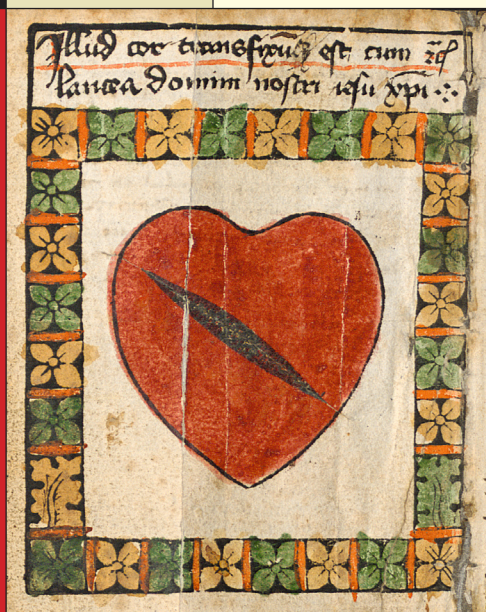 Illud cor transfixũ est cum
lancea domini nostri iesu xp̄i